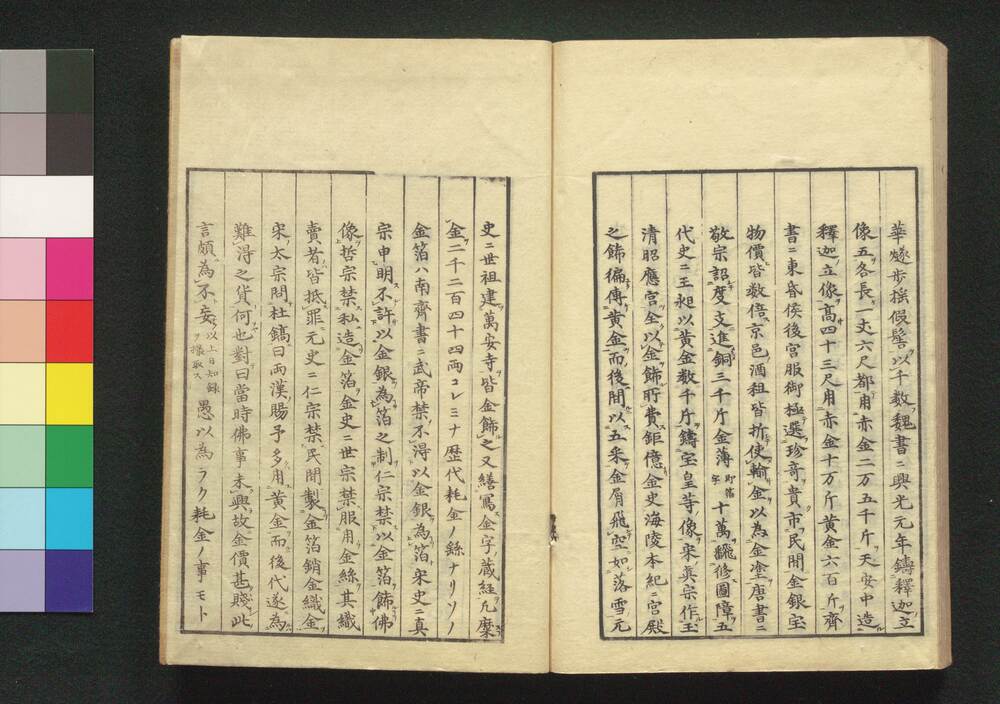 華燧歩揺假髻以千数魏書ニ興光元年鑄釋迦立
像五各長一丈六尺都用赤金二万五千斤天安中造
釋迦立像高四十三尺用赤金十万斤黄金六百斤齊
書ニ東昏侯後宮服御極選珍奇貴市民間金銀宝
物價皆数倍京邑酒租皆折使輸金以為金塗唐書ニ
敬宗詔度支進銅三千斤金薄即箔字十萬翻修圖障五
代史ニ王昶以黄金数千斤鑄宝皇等像宋真宗作玉
清昭應宮全以金飾所費鉅億金史海陵本紀ニ宮殿
之飾徧傳黄金而後間以五采金屑飛空如落雪元
史ニ世祖建萬安寺皆金飾之又繕寫金字蔵経凡糜
金二千二百四十四両コレミナ歴代耗金ノ繇ナリソノ
金箔ハ南齊書ニ武帝禁不得以金銀為箔宋史ニ真
宗申明不許以金銀為箔之制仁宗禁以金箔飾佛
像哲宗禁私造金箔金史ニ世宗禁服用金絲其織
賣者皆抵罪元史ニ仁宗禁民間製金箔銷金織金
宋太宗問杜鎬曰両漢賜予多用黄金而後代遂為
難得之貨何也對曰當時佛事未興故金價甚賤此
言頗為不妄以上日知録ヲ撮取ス愚以為ラク耗金ノ事モト